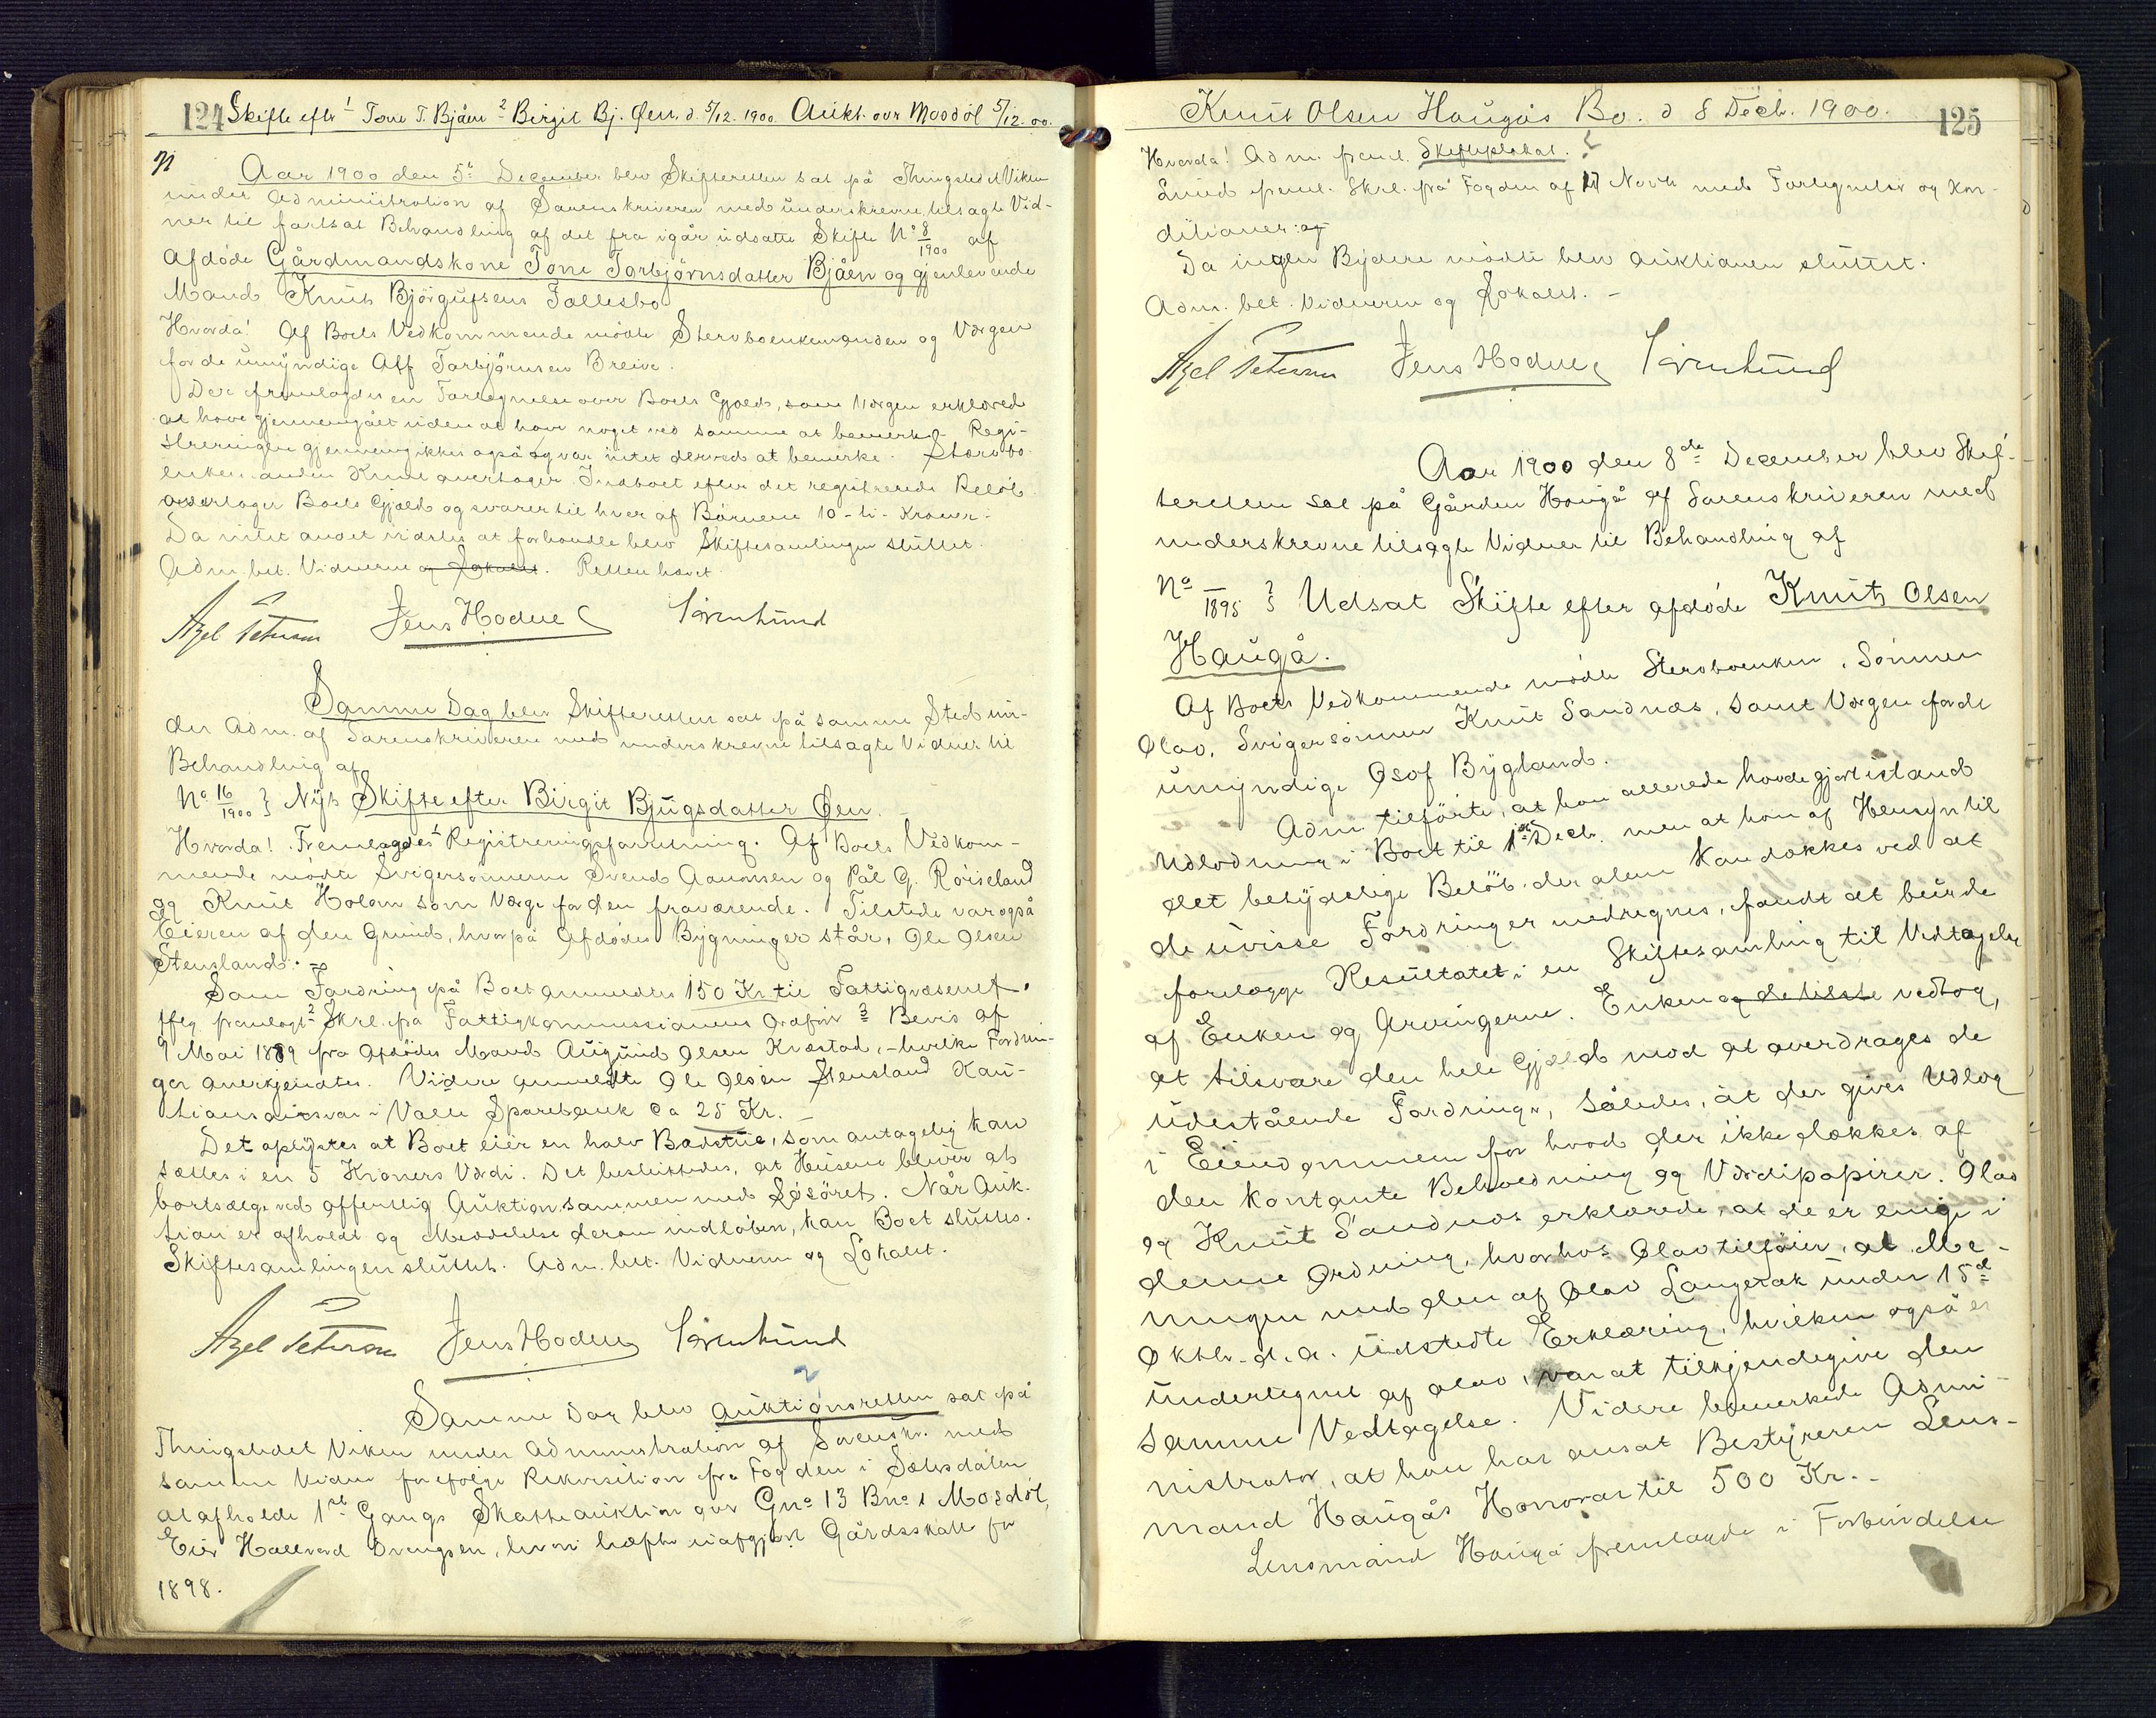 124 Skifte efter 1 Tone T. Bjåen 2 Birgit Bj. Øen. d 5/12. 1900. Aukt. over Mosdöl 5/12. 00.
Aar 1900 den 5te December blev Skifteretten sat på Thingstedet Viken
under Administration af Sorenskriveren med underskrevne tilsagte Vid-
ner til fortsat Behandling af det fra igår udsatte Skifte No 8/1900 af
Afdöde Gårdmandskone Tone Torbjörnsdatter Bjåen og gjenlevende
Mand Knut Björgufsens Fællesbo
Hvorda! Af Boets Vedkommende mödte Stervboenkemanden og Værgen
for de umyndige Alf Torbjörnsen Breive.
Der fremlagdes en Fortegnelse over Boets Gjæld, som Værgen erklærede
at have gjennemgået uden at have noget ved samme at bemerke. Regi-
streringen gjennemgikkes også og var intet derved at bemerke. Stervbo-
enkemanden Knut overtager Indboet efter det registrerede Belöb
overtager Boets Gjæld og svarer til hver af Börnene 10 - ti - Kroner.
Da intet andet vidstes at forhandle blev Skiftesamlingen sluttet.
Adm. bet. Vidnerne og Lokalet. Retten hævet.
Axel Petersen Jens Hodne Sören Lund
Samme Dag blev Skifteretten sat på samme Sted un-
der Adm. af Sorenskriveren med underskrevne tilsagte Vidner til
Behandling af
No 16/1900 } Nyt Skifte efter Birgit Bjugsdatter Øen.
Hvorda! Fremlagdes 1 Registreringsforretning. Af Boets Vedkom-
mende mödte Svigersönnerne Svend Aanonsen og Pål G. Röiseland
og Knut Holen som Værge for den fraværende. Tilstede var også
Eieren af den Grund, hvorpå Afdödes Bygninger står, Ole Olsen
Stensland. -
Som Fordring på Boet anmeldtes 150 Kr. til Fattigvæsenet.
ifölg fremlagt 2 Skrl. fra Fattigkommissionens Ordförer 3 Bevis af
9 Mai 1889 fra Afdödes Mand Augund Olsen Kvæstad, - hvilke Fordrin-
ger anerkjendtes. Videre anmeldte Ole Olsen Stensland Kau-
tionsansvar i Valle Sparebank Ca 25 Kr. -
Det oplystes at Boet eier en halv Badstue, som antagelig kan
sættes i en 5 Kroners Værdi. Det besluttedes, at Husene bliver at
bortsælge ved offentlig Auktion sammen med Løsöret. Når Auk-
tion er afholdt og Meddelelse derom indlöben, kan Boet sluttes.
Skiftesamlingen sluttet. Adm. bet. Vidnerne og Lokalet.
Axel Petersen Jens Hodne Sören Lund
Samme Dag blev Auktionsretten sat på
Thingstedet Viken under Administration af Sorenskr. med
samme Vidner for efölge Rekvisition fra Fogden i Sætersdalen
at afholde 1ste Gangs Skatteauktion over Gno 13 Bno 1 Mosdöl,
Eier Hallvard Drengsen, hvori hæfter uafgjort Gårdsskatt for
1898.
Knut Olsen Haugås Bo. d 8 Decb. 1900. 125
Hvorda! Adm. freml. Skifteplakat.
Lund freml. Skrl. fra Fogden af 17 Novb. med Fortegnelse og Kon-
ditioner og
Da ingen Bydere mödte blev Auktionen sluttet.
Adm. bet. Vidnerne og Lokalet. -
Axel Petersen Jens Hodne Sören Lund
Aar 1900 den 8de December blev Skif-
teretten sat på Gården Haugå af Sorenskriveren med
underskrevne tilsagte Vidner til Behandling af
No -/1895 } Udsat Skifte efter afdöde Knut Olsen
Haugå.
Af Boets Vedkommende mödte Stervboenken, Sönnen
Olav, Svigersönnen Knut Sandnæs, samt Værgen for de
umyndige Osof Bygland.
Adm. tilförte, at han allerede havde gjort istand
Udlodning i Boet til 1ste Decb. men at han af Hensyn til
det betydelige Belöb, der alene kan dækkes ved at
de uvisse Fordringer medregnes, fandt at burde
forelægge Resultatet i en Skiftesamling til Vedtagelse
af Enken og Arvingerne. Enken og de tilste vedtog,
at tilsvare den hele Gjæld mod at overdrages de
udestående Fordringer, således, at der gives Udlæg
i Eiendommen for hvad der ikke dækkes af
den kontante Beholdning og Værdipapirer. Olav
og Knut Sandnæs erklærede, at de er enige i
denne Ordning, hvorhos Olav tilföier, at Me-
ningen med den af Olav Langerak under 15de
Oktb. d.a. udstedte Erklæring, hvilken også er
undertegnet af Olav, var at tilkjendegive den
samme Vedtagelse. Videre bemerkede Admi-
nistrator, at han har ansat Bestyreren Lens-
mand Haugås Honorar til 500 Kr. -
Lensmand Haugå fremlagde i Forbindelse